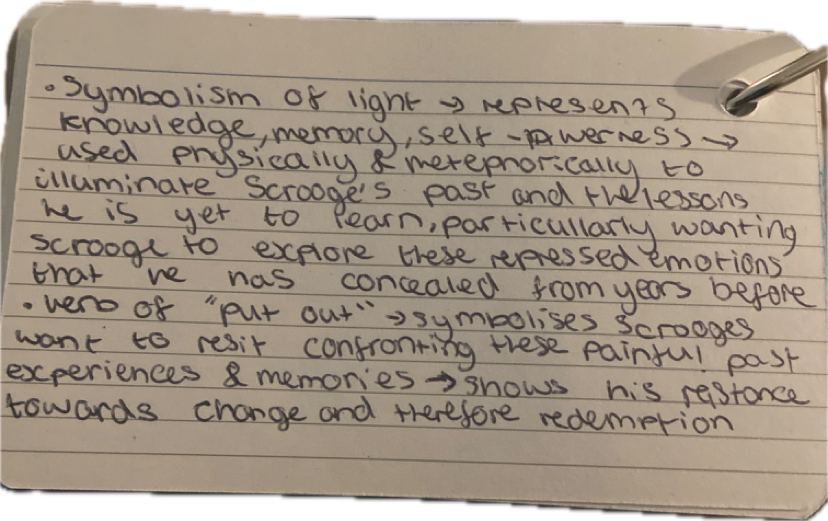 • Symbolism of light → represents
knowledge, memory, self-awerness →
used physically & metephorically to
illuminate Scrooge's past and the lessons
he is yet to learn, particullarly wanting
scrooge to explore these repressed emotions
that he has concealed from years before
• verb of "put out" → symbolises scrooges
want to resit confronting these painful past
experiences & memories → shows his resistance
towards change and therefore redemption